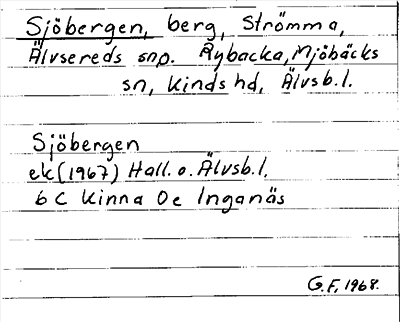 Sjöbergen, berg, Strömma,
Älvsereds snp. Rybacka, Mjöbäcks
sn, Kinds hd, Älvsb. l.
Sjöbergen
ek (1967) Hall. o. Älvsb. l.
6 C Kinna 0e Inganäs
G.F, 1968.